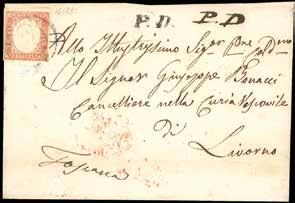 P.D. P.D
All'Illustrissimo Sig.r
Il Signor Giuseppe Bonacci
Cancelliere nella Curia Vescovile
Di
Livorno
Toscana